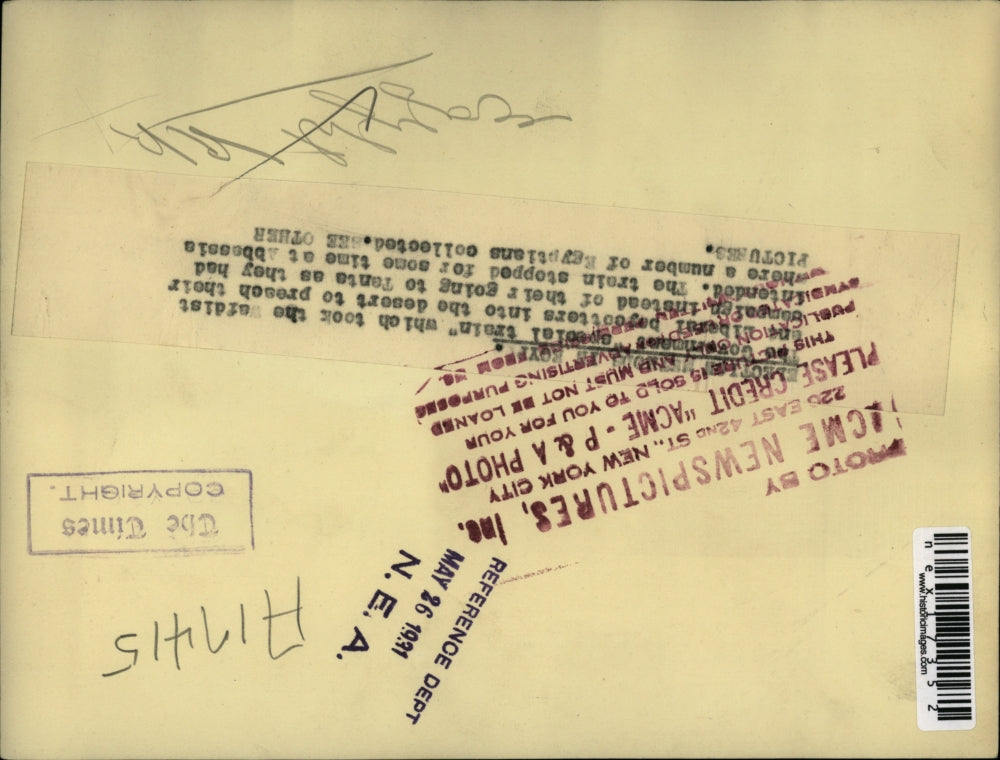 ELECTION
The Government "special train" which took the Wafdist
and Liberal boycotters into the desert to preach their
campaign instead of their going to Tanta as they had
intended. The train stopped for some time at Abbessia
where a number of Egyptians collected. SEE OTHER
PICTURES.
PHOTO BY
ACME NEWSPICTURES, Inc.
220 EAST 42ND ST., NEW YORK CITY
PLEASE CREDIT "ACME - P & A PHOTO"
THIS PICTURE IS SOLD TO YOU FOR YOUR
PUBLICATION ONLY AND MUST NOT BE LOANED
ADVERTISING PURPOSES
FROM US.
The Times
COPYRIGHT.
A17415
REFERENCE DEPT
MAY 26 1931
N. E. A.
nex17352
www.historicimages.com